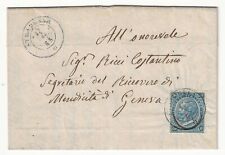 All'onorevole
Sig.r Ricci Costantino
Segretario del Ricovero di
Mendicità di Genova